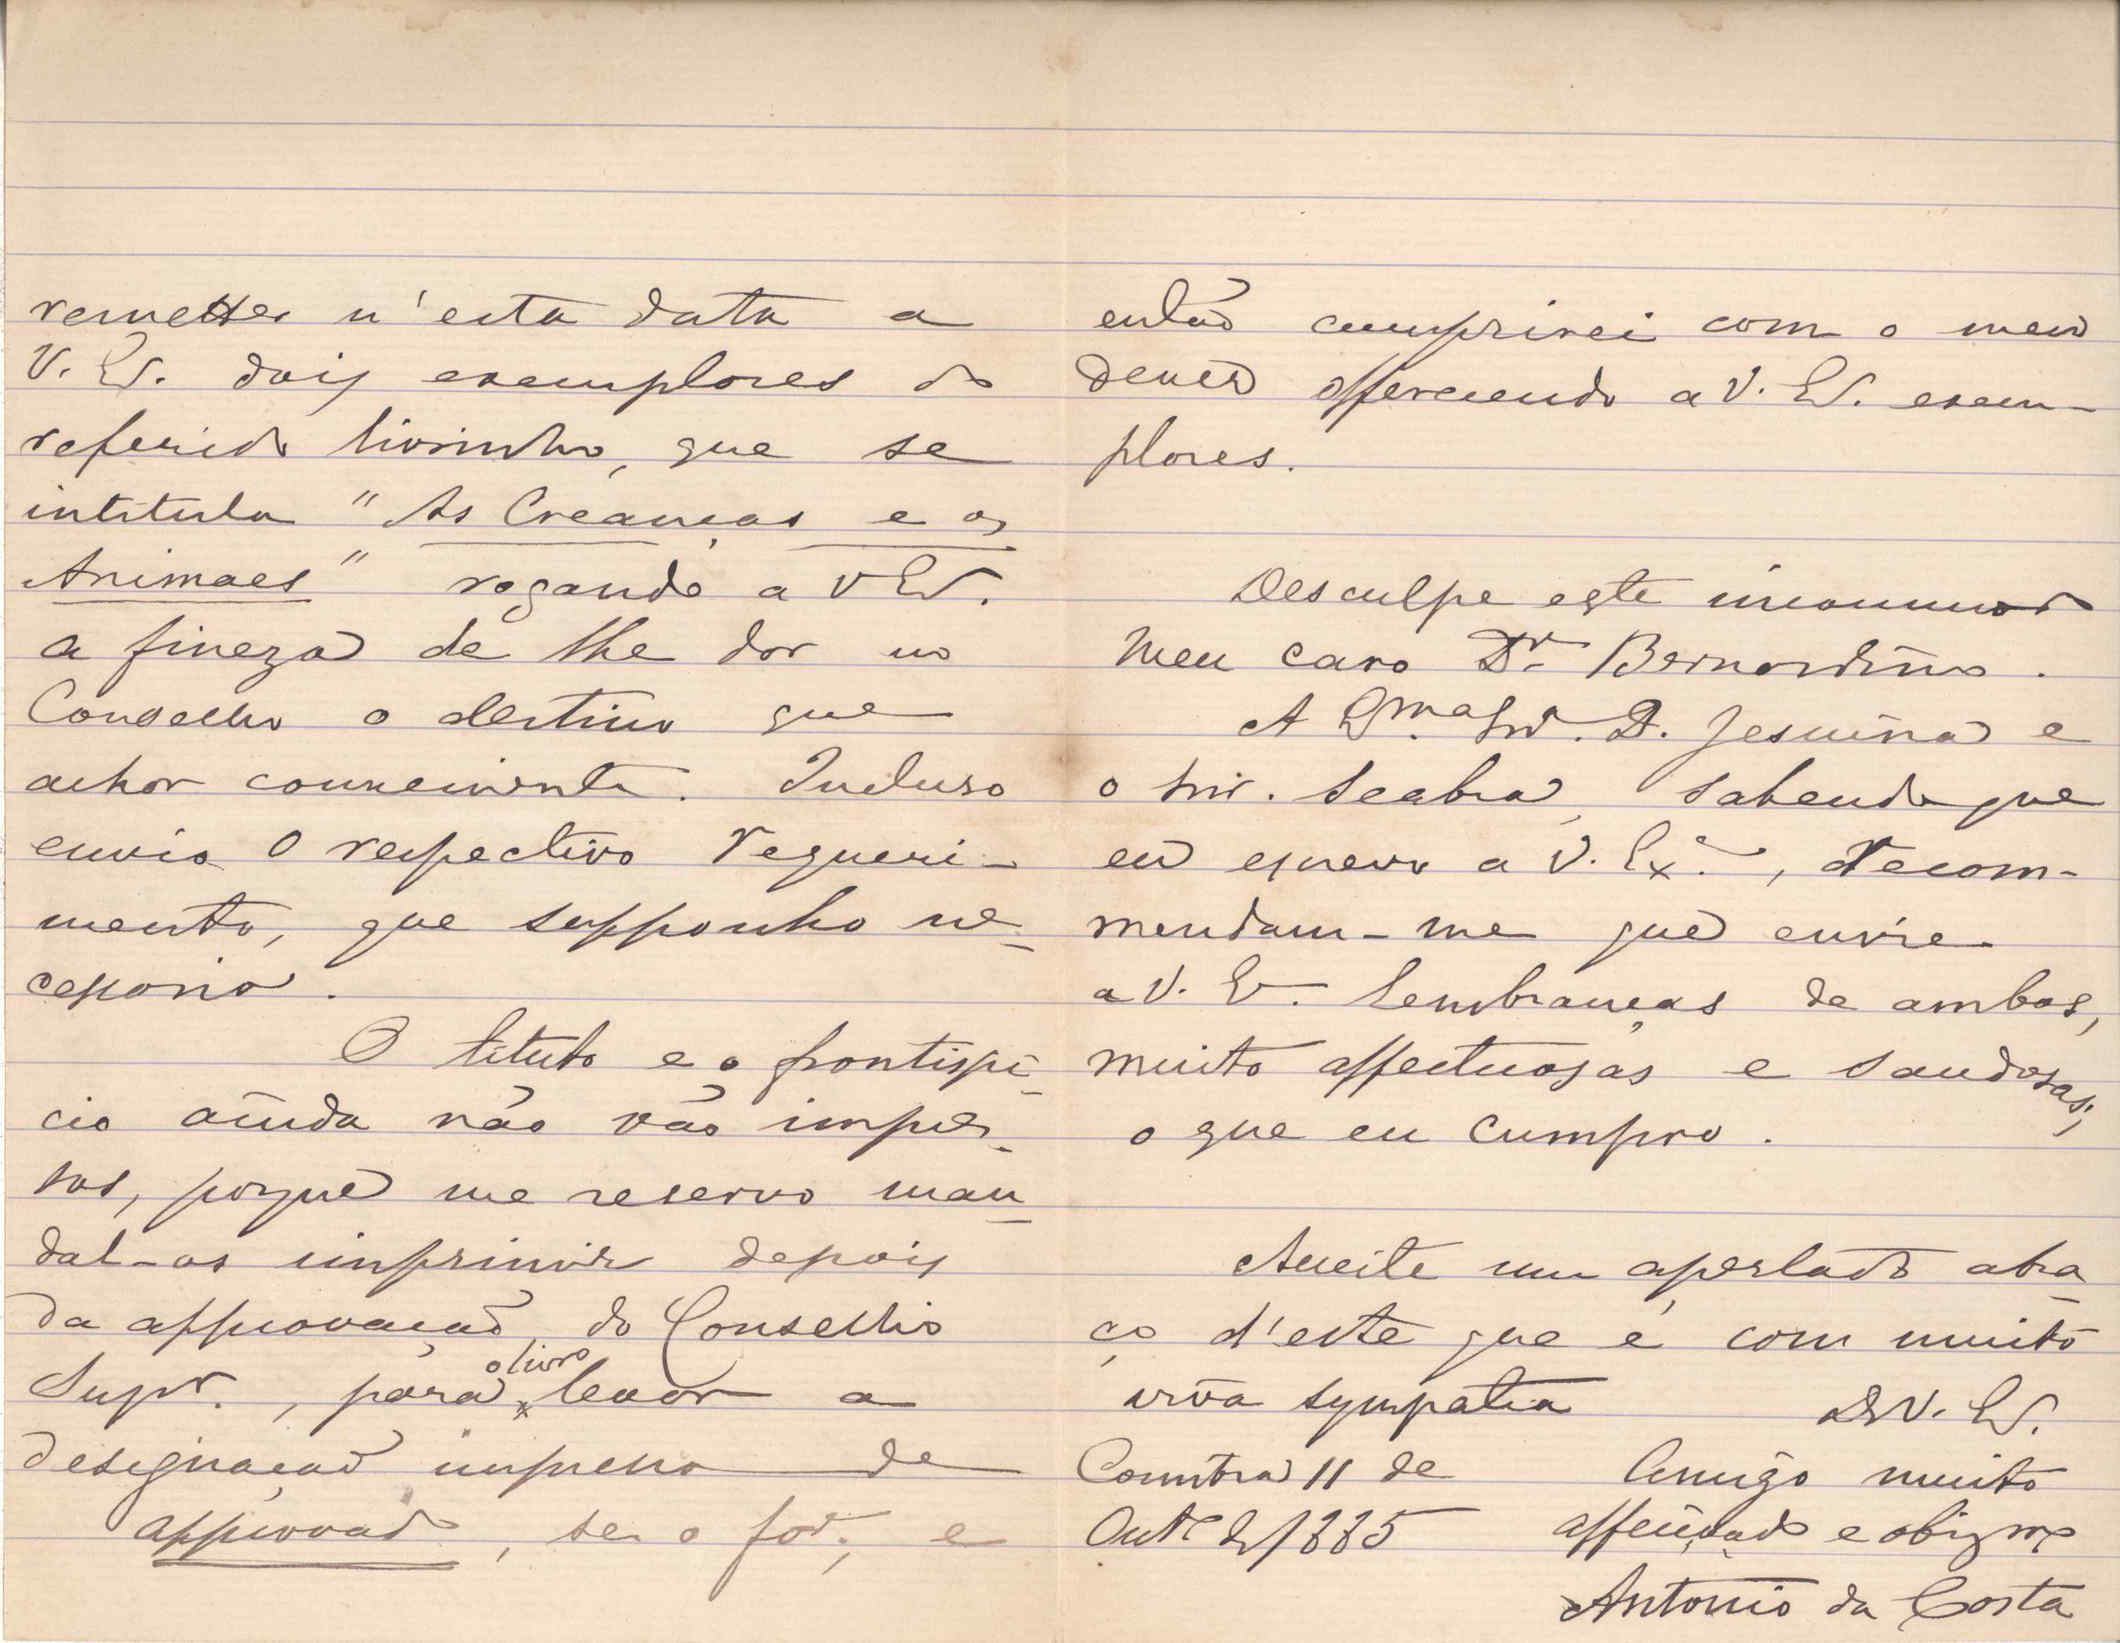 remetter n'esta data a
V. Ex. dois exemplares do
referido livrinho, que se
intitula "As Creanças e os
Animaes" rogando a V Ex.
a fineza de lhe dar no
Conselho o destino que
achar conveniente. Incluso
envio o respectivo requeri-
mento, que supponho ne-
cessario.
O titulo e o frontispi-
cio ainda não vão impres-
sos, porque me reservo man-
dal-os imprimir depois
da approvação do Conselho
Supr., para o livro levar a
designação impressa de
approvado, se o for; e
então cumprirei com o meu
dever offerecendo a V. Ex. exem-
plares.
Desculpe este incommodo
meu caro Dr. Bernardino.
A Exma Snr. D. Jesuina e
o Snr. Seabra, sabendo que
eu escrevo a V. Ex.a, recom-
mendam-me que envie
a V. Ex. lembranças de ambos,
muito affectuosas e saudosas;
o que eu cumpro.
Acceite um apertado abra-
ço d'este que é com muito
viva sympatia
De V. Ex.
Coimbra 11 de
Outo de 1885
Amigo muito
affeiçoado e obigmo
Antonio da Costa